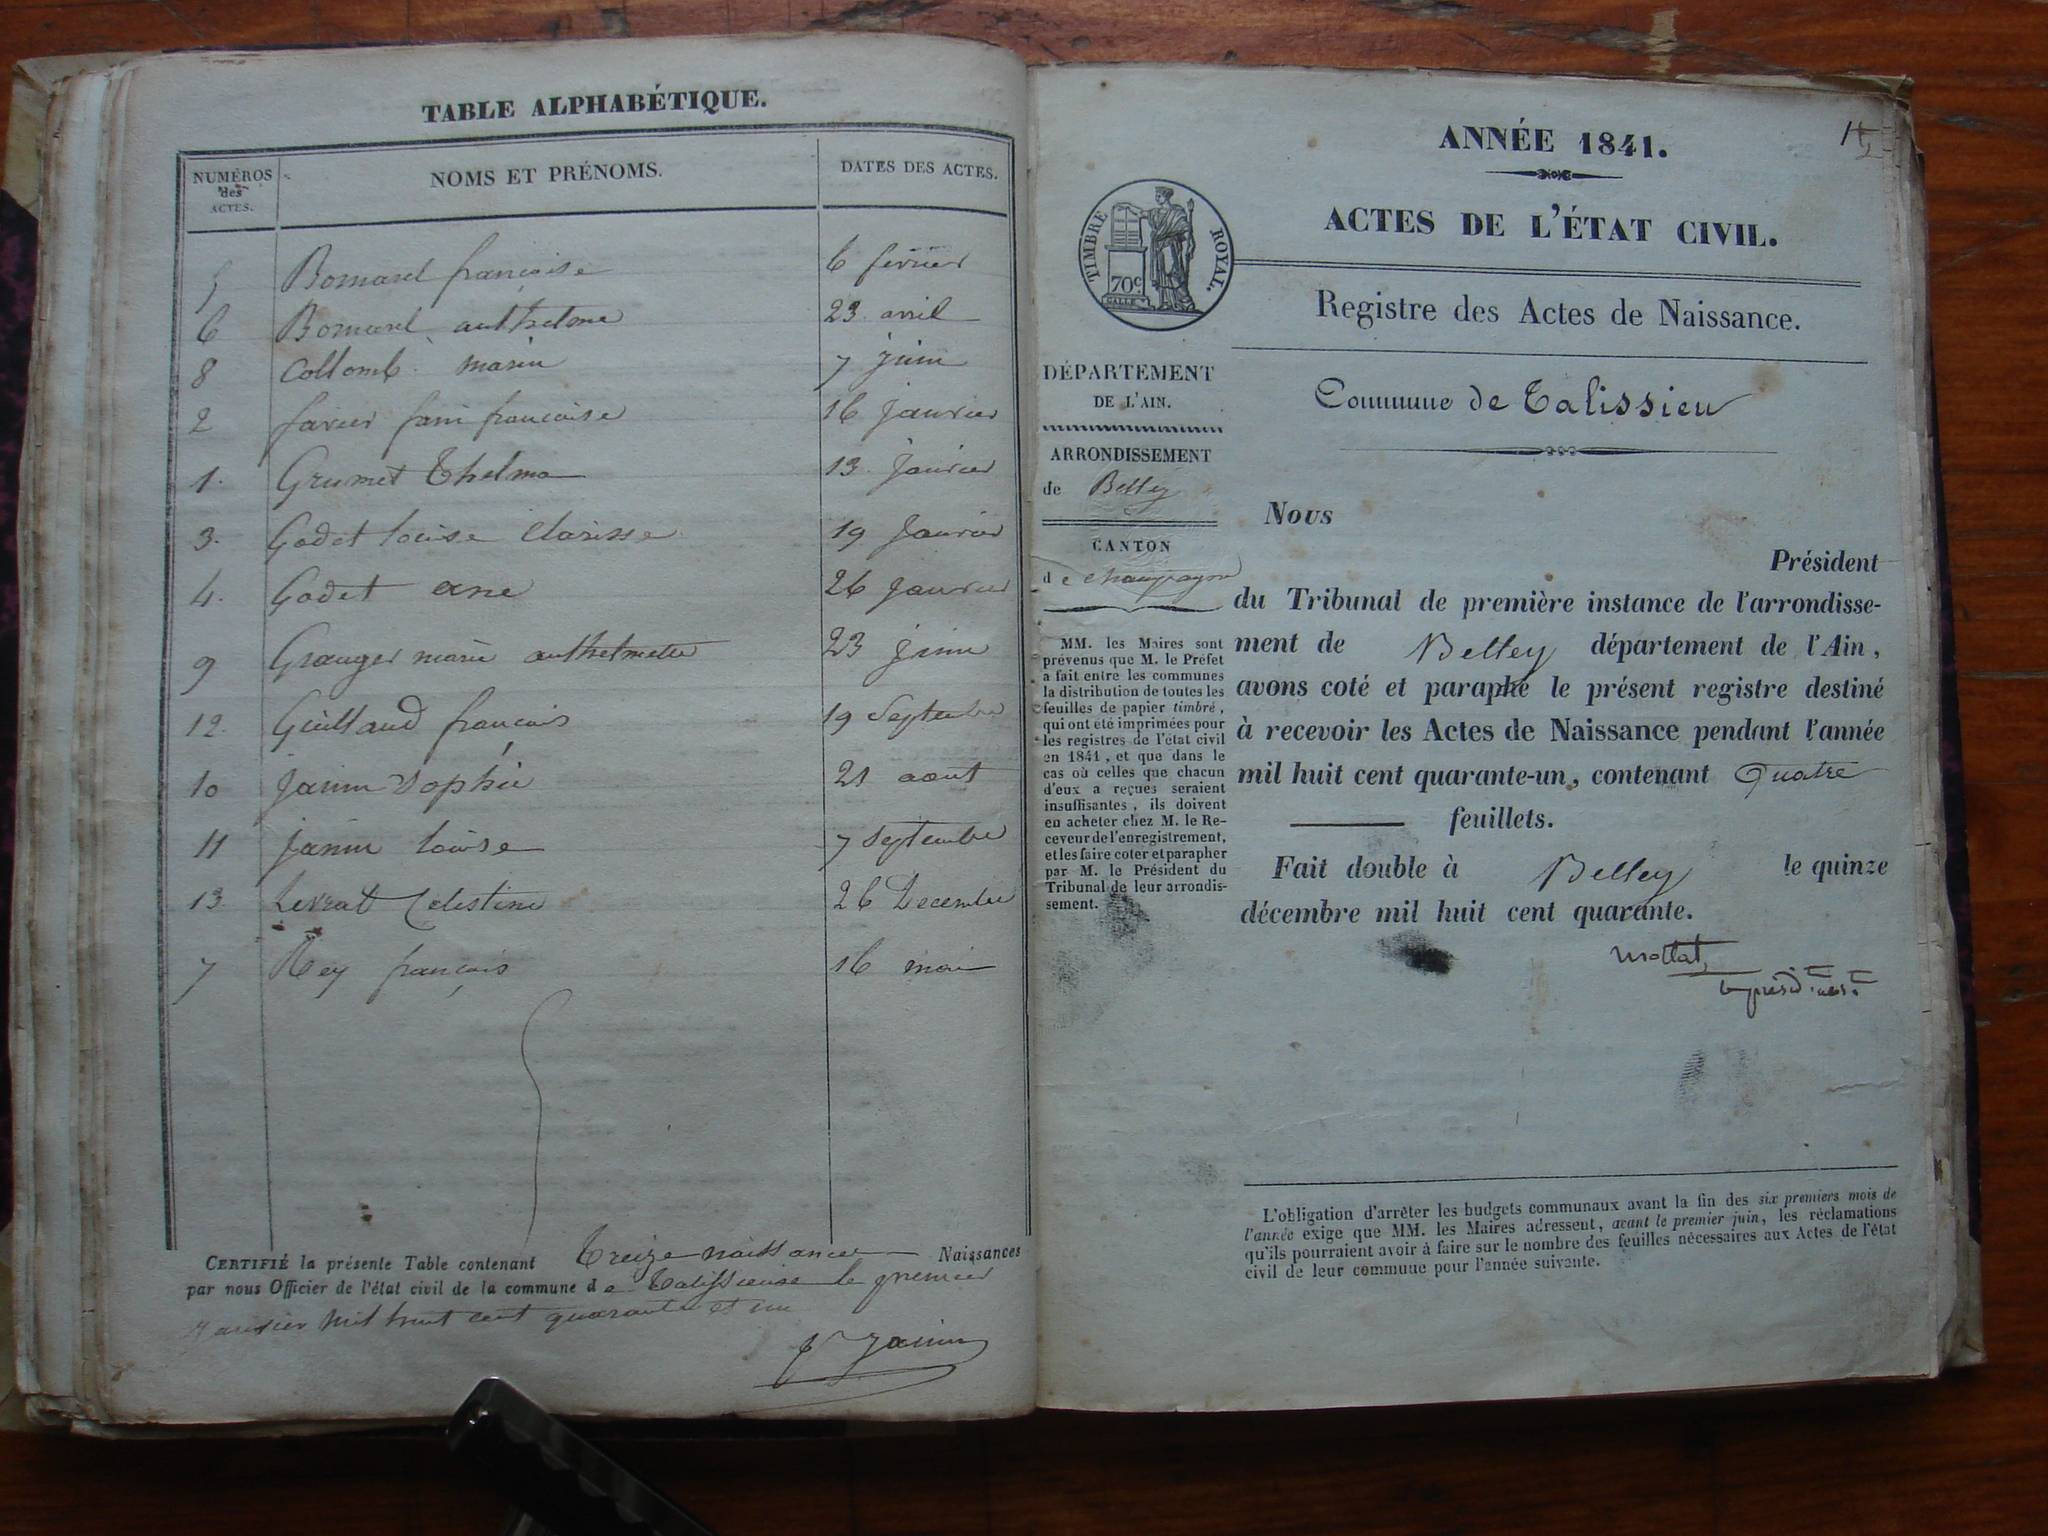 TABLE ALPHABÉTIQUE.
NUMÉROS des ACTES. NOMS ET PRÉNOMS. DATES DES ACTES.
5 Bornarel françoise 6 février
6 Bornarel anthelme 23 avril
8 Collomb marie 7 juin
2 favier françoise 16 Janvier
1. Grumet Thelma 13 Janvier
3. Godet Louise Clarisse 19 Janvier
4. Godet ane 26 Janvier
9 Granger marie anthelmette 23 juin
12. Guilland françois 19 Septembre
10 Janin Sophie 21 aout
11 Janin Louise 7 Septembre
13 Levrat Celestine 26 Decembre
7 Rey françois 16 mai
CERTIFIÉ la présente Table contenant Treize naissances Naissances
par nous Officier de l'état civil de la commune de Talissieu le premier
Janvier mil huit cent quarante et un
Janin
1
ANNÉE 1841.
ACTES DE L'ÉTAT CIVIL.
TIMBRE ROYAL.
70c
Registre des Actes de Naissance.
Commune de Talissieu
DÉPARTEMENT
DE L'AIN.
ARRONDISSEMENT
de Belley
CANTON
de Champagne
MM. les Maires sont
prévenus que M. le Préfet
a fait entre les communes
la distribution de toutes les
feuilles de papier timbré,
qui ont été imprimées pour
les registres de l'état civil
en 1841, et que dans le
cas où celles que chacun
d'eux a reçues seraient
insuffisantes, ils doivent
en acheter chez M. le Re-
ceveur de l'enregistrement,
et les faire coter et parapher
par M. le Président du
Tribunal de leur arrondis-
sement.
Nous
Président
du Tribunal de première instance de l'arrondisse-
ment de Belley département de l'Ain,
avons coté et paraphé le présent registre destiné
à recevoir les Actes de Naissance pendant l'année
mil huit cent quarante-un, contenant Quatre
feuillets.
Fait double à Belley le quinze
décembre mil huit cent quarante.
Mollat
L'obligation d'arrêter les budgets communaux avant la fin des six premiers mois de
l'année exige que MM. les Maires adressent, avant le premier juin, les réclamations
qu'ils pourraient avoir à faire sur le nombre des feuilles nécessaires aux Actes de l'état
civil de leur commune pour l'année suivante.